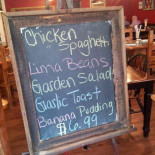 Chicken
Spaghetti
Lima Beans
Garden Salad
Garlic Toast
Banana Pudding
$6.99